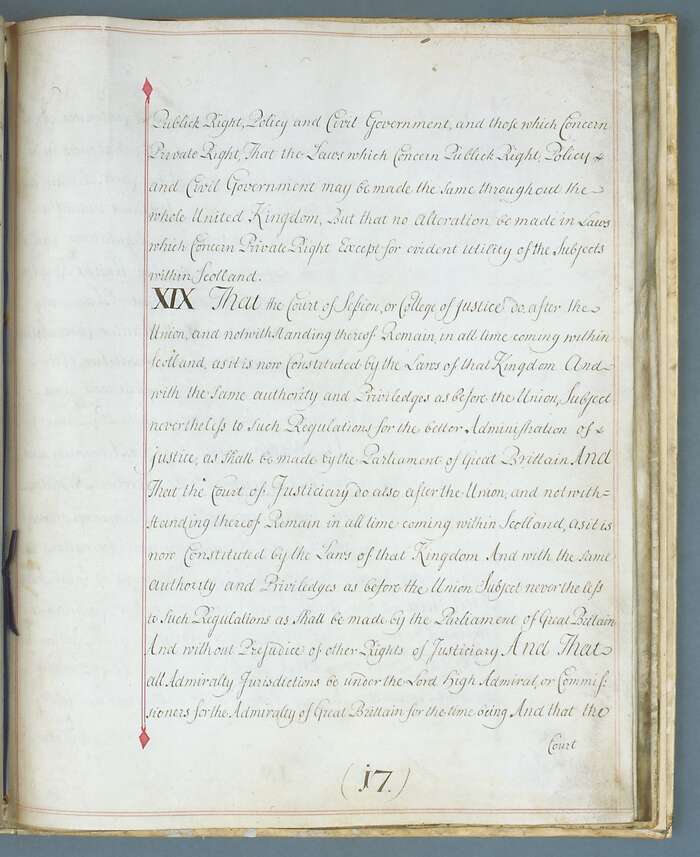 Publick Right, Policy and Civil Government, and those which Concern
Private Right, That the Laws which Concern Publick Right, Policy
and Civil Government may be made the same throughout the
whole United Kingdom, But that no alteration be made in Laws
which Concern Private Right Except for evident utility of the Subjects
within Scotland.
XIX That the Court of Session, or College of Justice do, after the
Union, and notwithstanding thereof Remain, in all time coming within
Scotland, as it is now Constituted by the Laws of that Kingdom And
with the Same authority and Priviledges as before the Union, Subject
nevertheless to Such Regulations for the better Administration of
Justice, as Shall be made by the Parliament of Great Brittain And
That the Court of Justiciary do also after the Union, and notwith=
standing thereof Remain in all time coming within Scotland, as it is
now Constituted by the Laws of that Kingdom And with the same
authority and Priviledges as before the Union Subject nevertheless
to Such Regulations as Shall be made by the Parliament of Great Brittain
And without Prejudice of other Rights of Justiciary And That
all Admiralty Jurisdictions be under the Lord High Admiral, or Commis:
sioners for the Admiralty of Great Brittain for the time being And that the
Court
(17.)